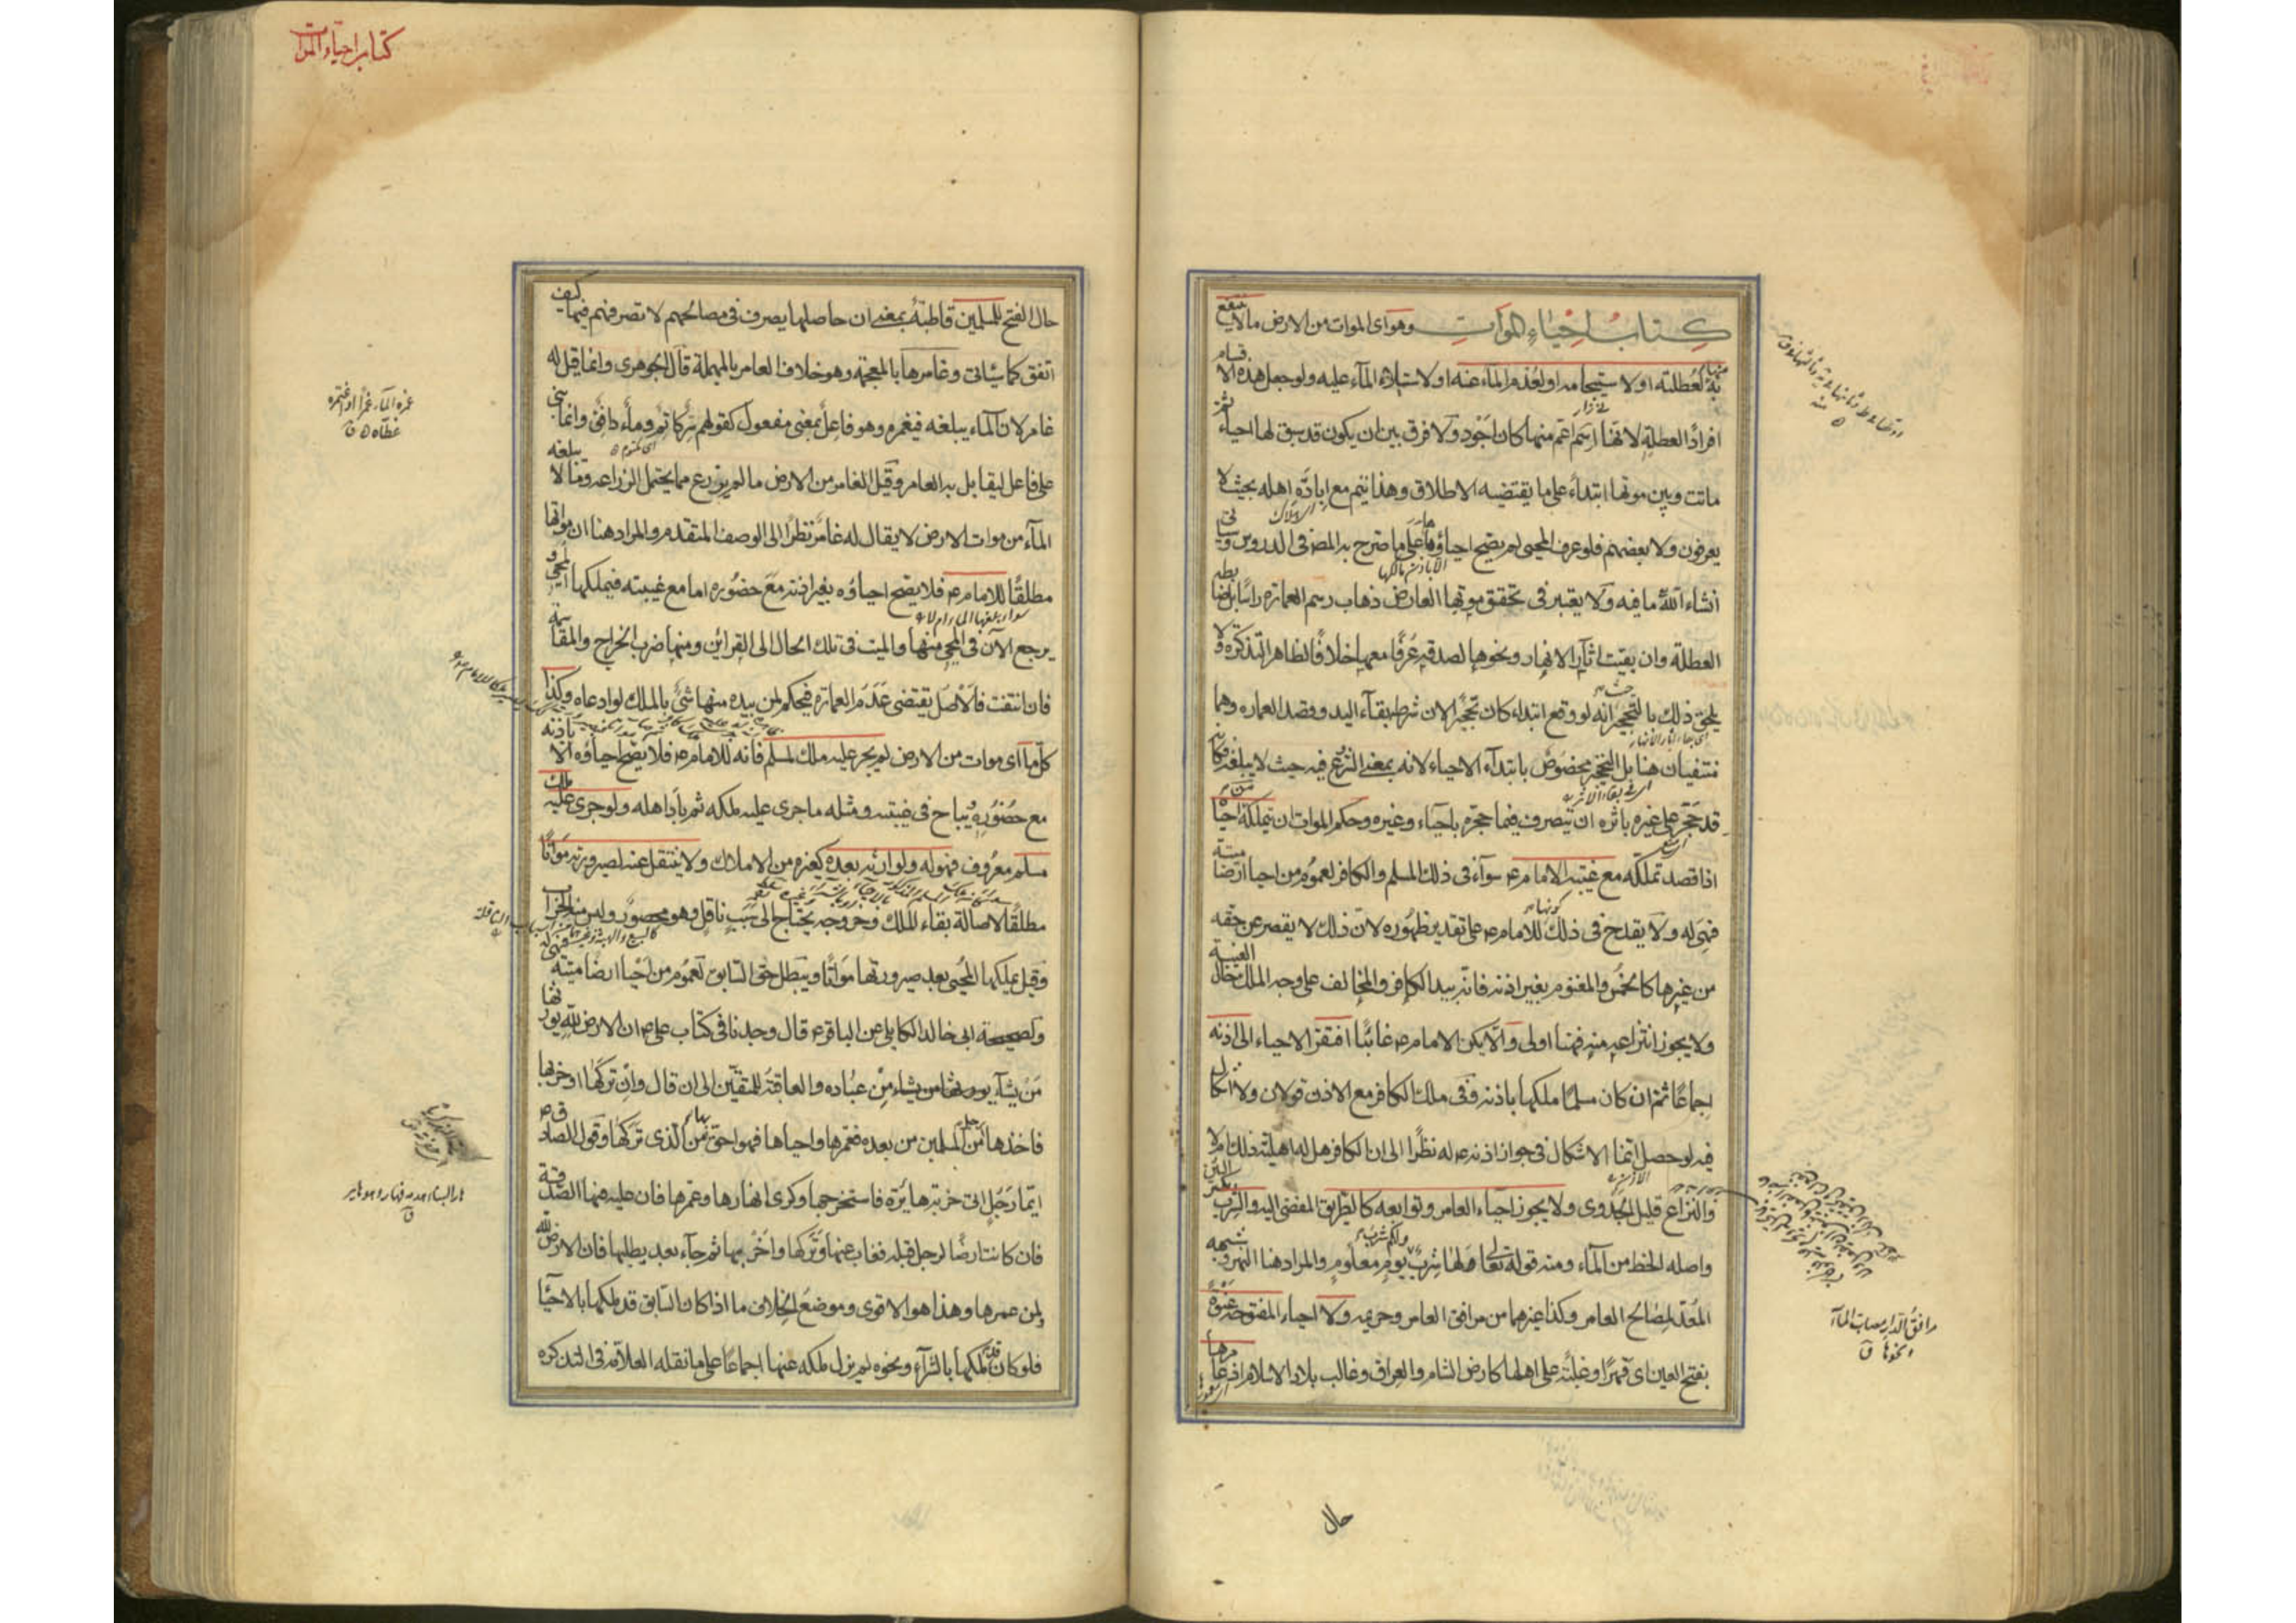 كتاب احياء الموات وهو اى الموات من الارض ما لا ينتفع
به لعطلته او لاستيجامه او لعدم الماء عنه او لاستيلاء الماء عليه ولو جعل هذه الاقسام
افراد العطلة لانها اعم منها كان اجود ولا فرق بين ان يكون قد سبق لها احياء ثم
ماتت وبين موتها ابتداء على ما يقتضيه الاطلاق وهذا يتم مع ابادة اهله بحيث لا
يعرفون ولا بعضهم فلو عرف المحيى لم يصح احياؤها على ما صرح به المصـ فى الدروس وسياتى
انشاء الله ما فيه ولا يعتبر فى تحقق موتها العارض ذهاب رسم العمارة راسا بل ضابطه
العطلة وان بقيت اثار الانهار ونحوها لصدقه عرفا معها خلافا لظاهر التذكرة ولا
يلحق ذلك بالتحجير حيث انه لو وقع ابتداء كان تحجيرا لان شرطه بقاء اليد وقصد العمارة وهما
منتفيان هنا بل التحجير مخصوص بابتداء الاحياء لانه بمعنى الشروع فيه حيث لا يبلغه فكانه
قد حجر على غيره باثره ان يتصرف فيما حجره باحياء وغيره وحكم الموات ان يتملكه من احياه
اذا قصد تملكه مع غيبة الامام ع سواء فى ذلك المسلم والكافر لعموم من احيا ارضا ميتة
فهى له ولا يقدح فى ذلك كونها للامام ع على تقدير ظهوره لان ذلك لا يقصر عن حقه
من غيرها كالخمس والمغنوم بغير اذنه فانه بيد الكافر والمخالف على وجه الملك حال الغيبة
ولا يجوز انتزاعه منه فهنا اولى والا يكن الامام ع غائبا افتقر الاحياء الى اذنه
اجماعا ثم ان كان مسلما ملكها باذنه وفى ملك الكافر مع الاذن قولان ولا اشكال
فيه لو حصل انما الاشكال فى جواز اذنه ع له نظرا الى ان الكافر هل له اهلية ذلك ام لا
والنزاع قليل الجدوى ولا يجوز احياء العامر وتوابعه كالطريق المفضى اليه والشرب بكسر الشين
واصله الحظ من الماء ومنه قوله تعالى لها شرب ولكم شرب يوم معلوم والمراد هنا النهر وشبهه
المعد لمصالح العامر وكذا غيرهما من مرافق العامر وحريمه ولا احياء المفتوحة عنوة
بفتح العين اى قهرا وغلبة على اهلها كارض الشام والعراق وغالب بلاد الاسلام اذ عامرها
مرافق الدار مصاب الماء
ونحوها ق
حال
كتاب احياء الموات
حال الفتح للمسلمين قاطبة بمعنى ان حاصلها يصرف فى مصالحهم لا تصرفهم فيها كيف
اتفق كما سياتى وغامرها بالمعجمة وهو خلاف العامر بالمهملة قال الجوهرى وانما قيل له
غامر لان الماء يبلغه فيغمره وهو فاعل بمعنى مفعول كقولهم سر كاتم وماء دافق وانما بنى
على فاعل ليقابل به العامر وقيل الغامر من الارض ما لم يزرع مما يحتمل الزراعه وما لا يبلغه
الماء من موات الارض لا يقال له غامر نظرا الى الوصف المتقدم والمراد هنا ان مواتها
مطلقا للامام ع فلا يصح احياؤه بغير اذنه مع حضوره اما مع غيبته فيملكها المحيى و
يرجع الآن فى المحيى منها والميت فى تلك الحال الى القرائن ومنها ضرب الخراج والمقاسمة
فان انتفت فالاصل يقتضى عدم العمارة فيحكم لمن بيده منها شئ بالملك لو ادعاه وكذا
كلما اى موات من الارض لم يجر عليه ملك لمسلم فانه للامام ع فلا يصح احياؤه الا باذنه
مع حضوره ويباح فى غيبته ومثله ما جرى عليه ملكه ثم باد اهله ولو جرى عليه ملك
مسلم معروف فهو له ولوارثه بعده كغيره من الاملاك ولا ينتقل عنه لصيرورته مواتا
مطلقا لاصالة بقاء الملك وخروجه يحتاج الى سبب ناقل وهو محصور وليس منه الخراب
وقيل يملكها المحيى بعد صيرورتها مواتا ويبطل حق السابق لعموم من احيا ارضا ميتة فهى له
ولصحيحة ابى خالد الكابلى عن الباقر ع قال وجدنا فى كتاب على ع ان الارض لله يورثها
من يشاء من عباده والعاقبة للمتقين الى ان قال وان تركها او خربها
فاخذها رجل من المسلمين من بعده فعمرها واحياها فهو احق بها من الذى تركها وقول الصادق ع
ايما رجل اتى خربة بائرة فاستخرجها وكرى انهارها وعمرها فان عليه فيها الصدقة
فان كانت ارضا لرجل قبله فغاب عنها وتركها واخربها ثم جاء بعد يطلبها فان الارض لله
ولمن عمرها وهذا هو الاقوى وموضع الخلاف ما اذا كان السابق قد ملكها بالاحياء
فلو كان قد ملكها بالشراء ونحوه لم يزل ملكه عنها اجماعا على ما نقله العلامة فى التذكرة
غمره الماء غمرا واغتمره
غطاه ق